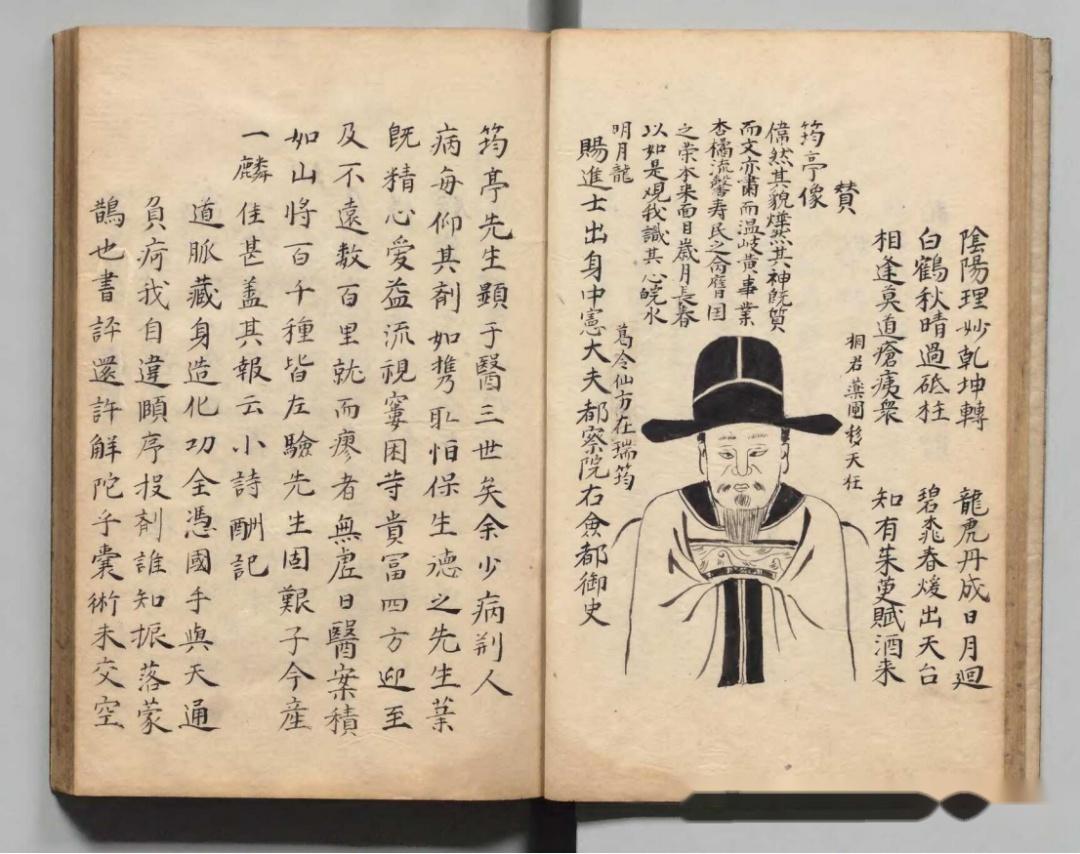 陰陽理妙乾坤轉　龍虎丹成日月廻
白鶴秋晴過砥柱　碧桃春煖出天台
相逢莫道瘡痍衆　知有茱萸賦酒来
桐君藥圃移天柱
葛令仙方在瑞筠
贊
筠亭像
偉然其貌燁然其神既質
而文亦肅而温岐黄事業
杏橘流馨寿民之
之荣本来面目歳月長春
以如是观我識其心皖水
明月龍
賜進士出身中憲大夫都察院右僉都御史
筠亭先生顕于醫三世矣余少病荆人
病每仰其剤如携耻怕保生德之先生葉
既精心爱益流視窶困等貴冨四方迎至
及不遠数百里就而廖者無虚日醫案積
如山将百千種皆左驗先生固艱子今産
一麟佳甚盖其報云小詩酬記
道脈藏身造化功全憑國手與天通
負疴我自違頤序投剤誰知振落蒙
鵲也書許還許解陀乎囊術未交空